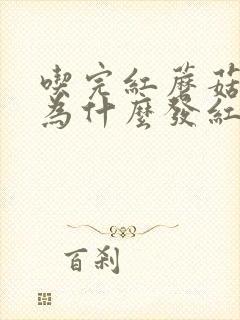 喫完紅蘑菇
為什麼發紅
百刹